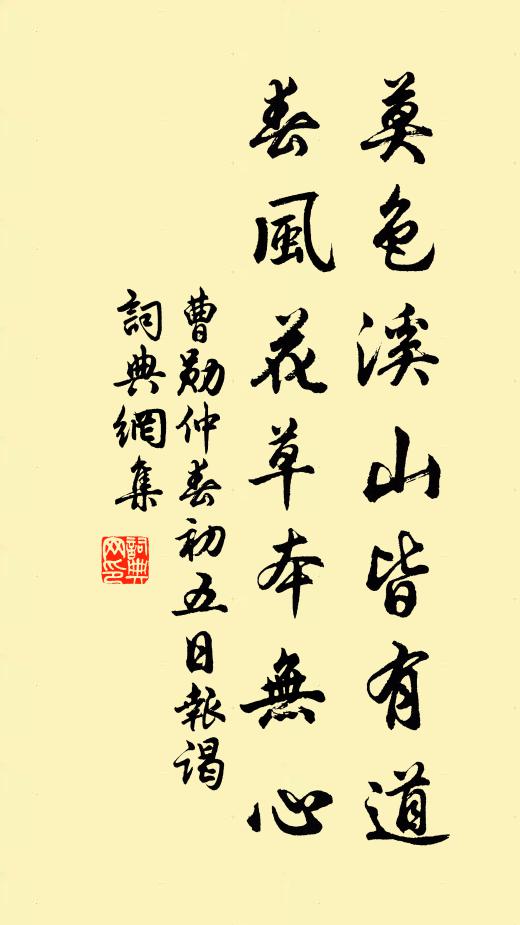 莫色溪山皆有道
春風花草本無心
曹勛仲春初五日報謁
詞典網集
詞典
网印